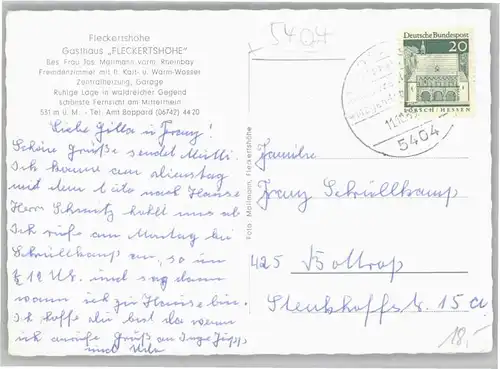 Fleckertshöhe
Gasthaus „FLECKERTSHÖHE"
Bes. Frau Jos. Mallmann vorm. Rheinbay
Fremdenzimmer mit fl. Kalt- u. Warm-Wasser
Zentralheizung, Garage
Ruhige Lage in waldreicher Gegend
schönste Fernsicht am Mittelrhein
531 m ü. M. - Tel. Amt Boppard (06742) 4420
Liebe Gilla u Franz!
Schöne Grüße sendet Mutti.
Ich komme am dienstag
mit dem Auto nach Hause
Herr holt uns ab
Ich rufe am Montag bei
Schrüllkamp an, so um
½ 12 Uhr. und sag dann
wann ich zu Hause bin.
Ich hoffe du bist da wenn
ich anrufe Gruß an Inge
und Udo
Foto Mallmann, Fleckertshöhe
5404
Deutsche Bundespost
20
LORSCH / HESSEN
5404
Familie
Franz Schrüllkamp
425 Bottrop
Steinhoffstr. 15 a
18,-